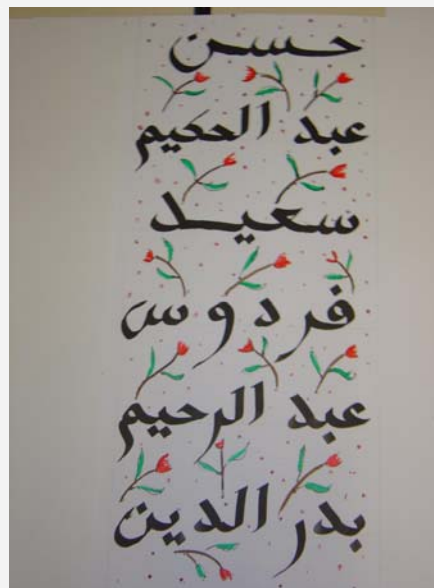 حسن
عبد الحكيم
سعيد
فردوس
عبد الرحيم
بدر الدين